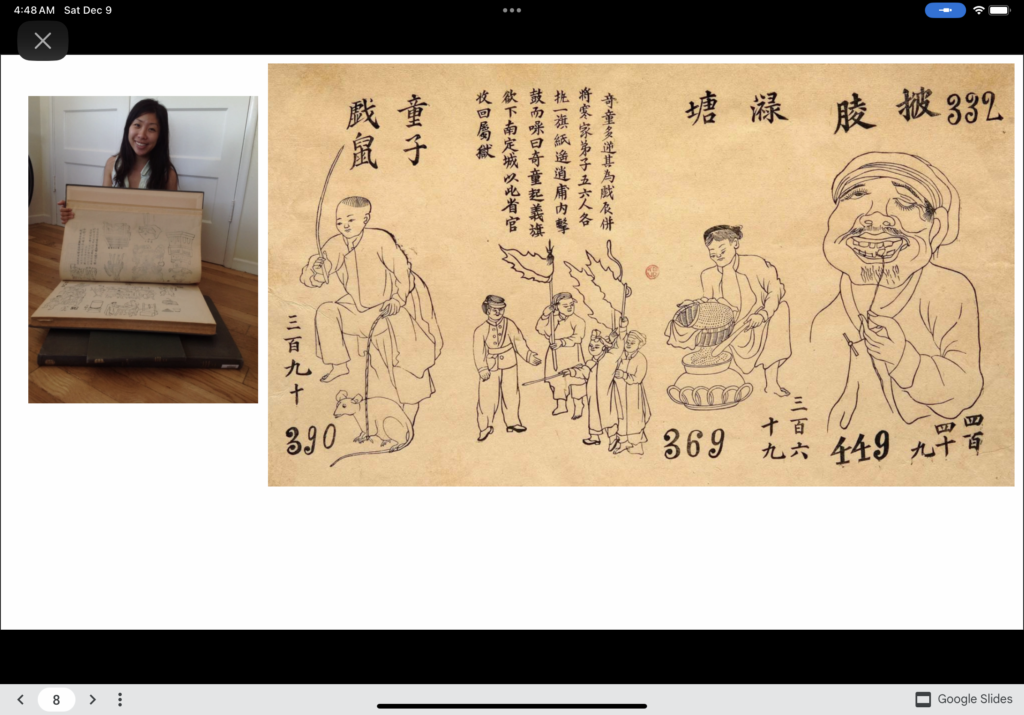 4:48 AM Sat Dec 9
童子
戲鼠
三百九十
390
奇童多逆其為戲衣併
將寒家弟子五六人各
批一旗紙遙逍庸內擊
鼓而噪曰奇童起義旗
欲下南定城以此省官
收回屬獄
淥
塘
369
三百六
十九
披
332
四百
四十
九
449
8
Google Slides